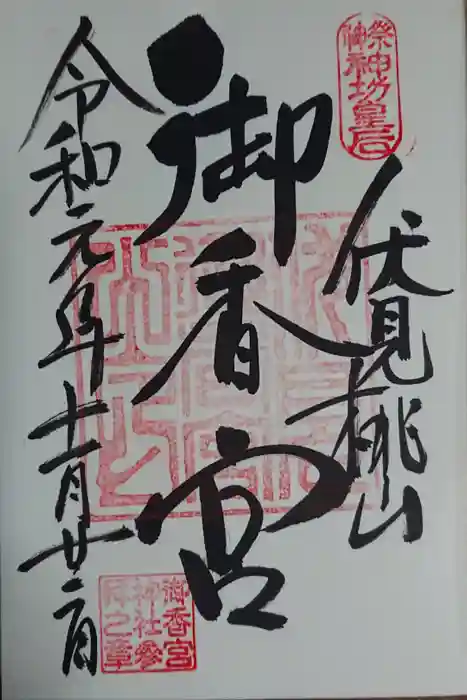 祭神
神功皇后
伏見桃山
御香宮
令和元年十一月廿二日
御香宮
神社參
拜之章